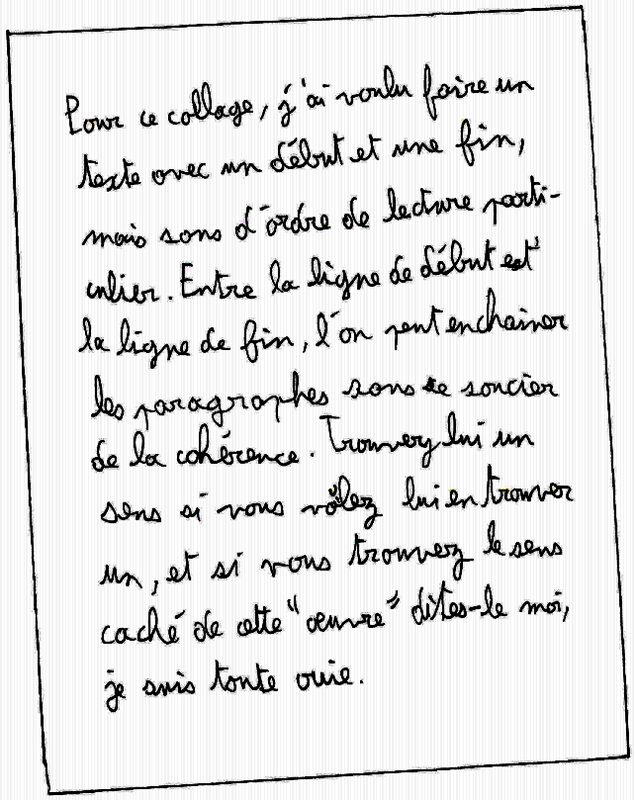 Pour ce collage, j'ai voulu faire un
texte avec un début et une fin,
mais sans d'ordre de lecture parti-
culier. Entre la ligne de début est
la ligne de fin, l'on peut enchainer
les paragraphes sans se soucier
de la cohérence. Trouvez lui un
sens si vous vôlez lui en trouver
un, et si vous trouvez le sens
caché de cette "œuvre" dîtes-le moi,
je suis toute ouie.